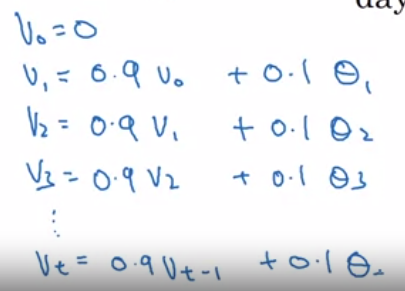 day
V₀ = 0
V₁ = 0.9 V₀ + 0.1 θ₁
V₂ = 0.9 V₁ + 0.1 θ₂
V₃ = 0.9 V₂ + 0.1 θ₃
⋮
Vt = 0.9 Vt-1 + 0.1 θ